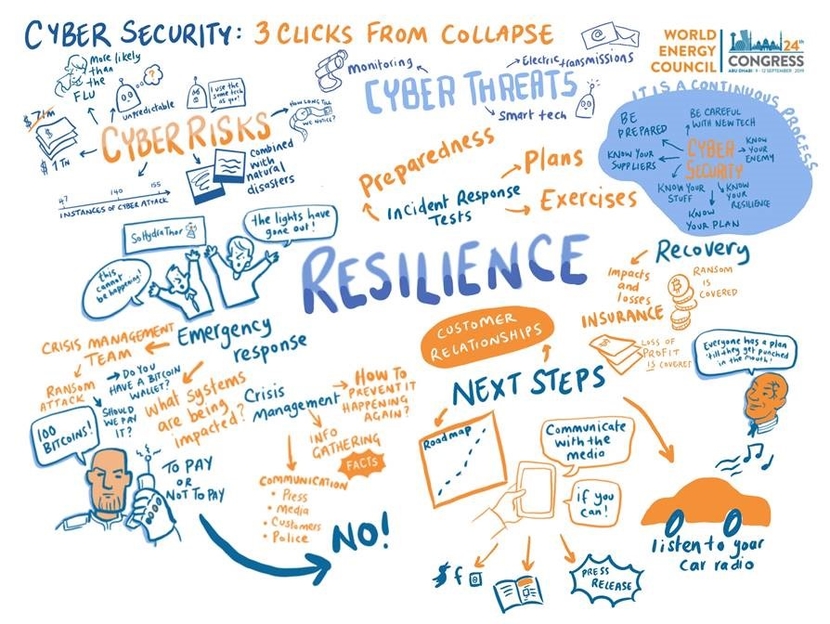 CYBER SECURITY: 3 CLICKS FROM COLLAPSE
WORLD
ENERGY
COUNCIL
24TH
CONGRESS
ABU DHABI 9 - 12 SEPTEMBER 2019
more likely
than
the
FLU
?
unpredictable
I use the
same tech
as you!
$7m
$1TN
CYBER RISKS
HOW LONG TILL
WE NOTICE?
combined
with
natural
disasters
47
140
155
INSTANCES OF CYBER ATTACK
monitoring
Electric transmissions
CYBER THREATS
Smart tech
Preparedness
Plans
Incident Response
Tests
Exercises
IT IS A CONTINUOUS PROCESS
BE
PREPARED
BE CAREFUL
WITH NEW TECH
KNOW YOUR
SUPPLIERS
CYBER
SECURITY
KNOW
YOUR
ENEMY
KNOW YOUR
STUFF
KNOW
YOUR
RESILIENCE
KNOW
YOUR PLAN
the lights have
gone out!
this
cannot
be happening!
RESILIENCE
Recovery
Impacts
and
losses
RANSOM
IS
COVERED
INSURANCE
LOSS OF
PROFIT
IS COVERED
CRISIS MANAGEMENT
TEAM
Emergency
response
RANSOM
ATTACK
DO YOU
HAVE A BITCOIN
WALLET?
SHOULD
WE PAY
IT?
What systems
are being
impacted?
100
BITCOINS!
TO PAY
OR
NOT TO PAY
NO!
Crisis
Management
HOW TO
PREVENT IT
HAPPENING
AGAIN?
INFO
GATHERING
FACTS
COMMUNICATION
• Press
• media
• Customers
• Police
CUSTOMER
RELATIONSHIPS
NEXT STEPS
Roadmap
Communicate
with the
media
if you
can!
f
PRESS
RELEASE
Everyone has a plan
'till they get punched
in the mouth!
listen to your
car radio